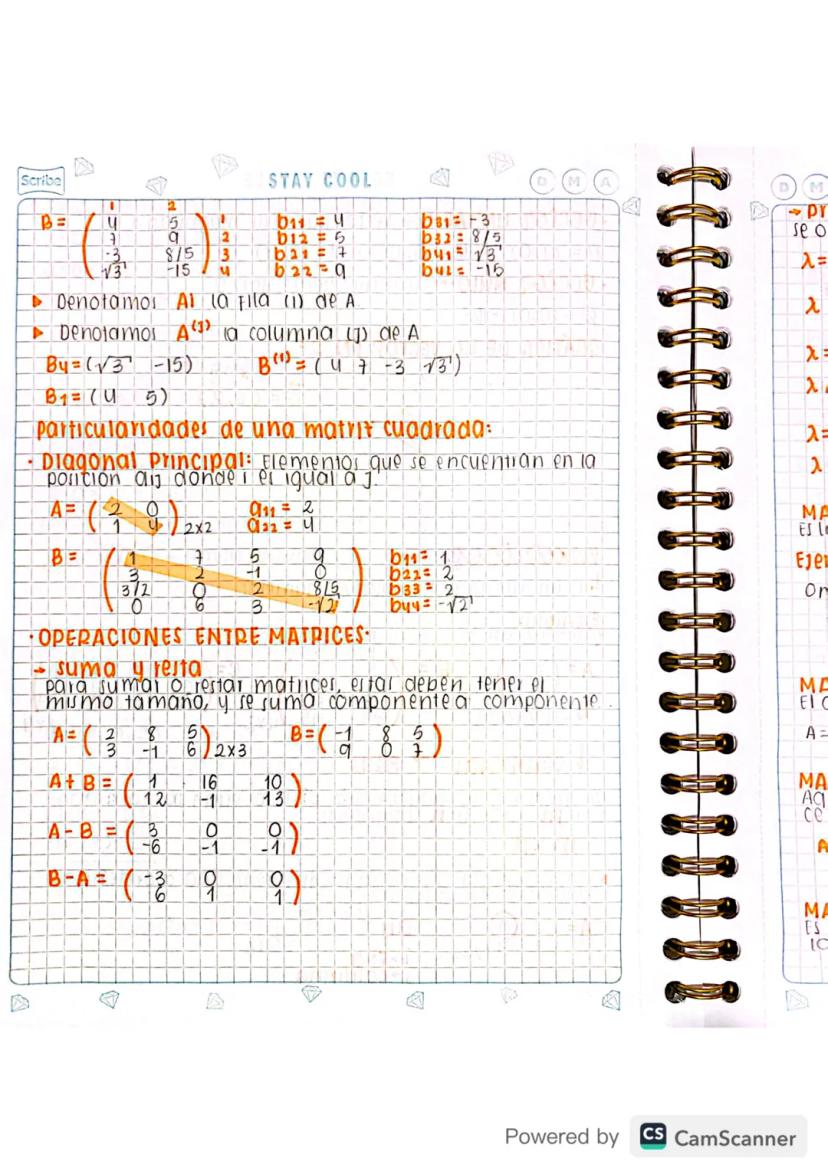 Scribe
STAY COOL
D M A
1 2
B= ( 4 5 ) 1 b11 = 4 b31= -3
7 9 2 b12 = 5 b32= 8/5
-3 8/5 3 b21 = 7 b41= √3
√3 -15 4 b22 = 9 b42= -15
▸ Denotamos Ai la fila (i) de A
▸ Denotamos A(J) la columna (J) de A
B4=(√3 -15) B(1)= ( 4 7 -3 √3)
B1= (4 5)
Particularidades de una matriz cuadrada:
· Diagonal Principal: Elementos que se encuentran en la
posición aij donde i es igual a j.
A= ( 2 0 a11 = 2
1 4 ) 2x2 a22 = 4
B = ( 1 7 5 9 ) b11= 1
3 2 -1 0 b22= 2
3/2 0 2 8/5 b33= 2
0 6 3 -√2 b44= -√2
·OPERACIONES ENTRE MATRICES·
→ suma y resta
para sumar o restar matrices, estas deben tener el
mismo tamaño, y se suma componente a componente.
A= ( 2 8 5 B= ( -1 8 5
3 -1 6 ) 2x3 9 0 7 )
A+ B = ( 1 16 10
12 -1 13 )
A - B = ( 3 0 0
-6 -1 -1 )
B-A = ( -3 0 0
6 1 1 )
D M
→ pr
se o
λ=
λ
λ=
λ
λ=
λ
MA
Es l
Ejer
Or
MA
El c
A=
MA
Aq
ce
A
MA
Es
lo
Powered by CS CamScanner